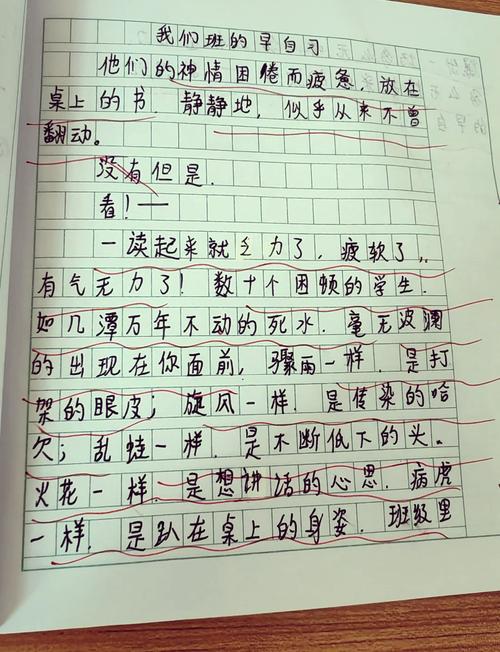 我们班的早自习
他们的神情困倦而疲惫,放在
桌上的书 静静地,似乎从来不曾
翻动。
没有但是.
看!——
一读起来就乏力了,疲软了,
有气无力了!数十个困顿的学生.
如几潭万年不动的死水.毫无波澜
的出现在你面前,骤雨一样.是打
架的眼皮;旋风一样.是传染的哈
欠;乱蛙一样.是不断低下的头.
火花一样.是想讲话的心思.病虎
一样.是趴在桌上的身姿.班级里